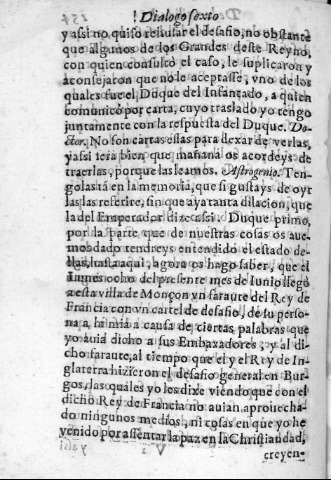 Dialogo sexto
y assi no quiso rehusar el desafio, no obstante
que algunos de los Grandes deste Reyno,
con quien consultò el caso, le suplicaron y
aconsejaron que no le aceptasse, vno de los
quales fue el Duque del Infantado, a quien
comunicò por carta, cuyo traslado yo tengo
juntamente con la respuesta del Duque. Do-
ctor. No son cartas estas para dexar de verlas,
y assi serà bien que mañana os acordeys de
traerlas, porque las leamos. Astrogenio. Ten-
golas tã en la memoria, que si gustays de oyr
las las referire, sin que aya tanta dilacion, que
la del Emperador dize assi. Duque primo,
por la parte que de nuestras cosas os aue-
mos dado tendreys entendido el estado de-
llas, hasta aqui, agora os hago saber, que el
Lunes ocho del presente mes de Iunio llegó
a esta villa de Monçon vn faraute del Rey de
Francia con vn cartel de desafio, de su perso-
na a la mia a causa de ciertas palabras que
yo auia dicho a sus Embaxadores, y al di-
cho faraute, al tiempo que el y el Rey de In-
glaterra hizieron el desafio general en Bur-
gos, las quales yo les dixe viendo que con el
dicho Rey de Francia no auian aprouecha-
do ningunos medios, ni cosas en que yo he
venido por assentar la paz en la Christiandad,
creyen-